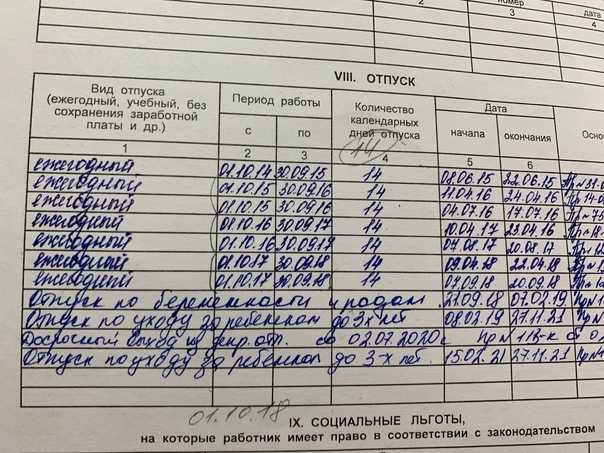 2 номер 3 дата 4
VIII. ОТПУСК
Вид отпуска (ежегодный, учебный, без сохранения заработной платы и др.) Период работы Количество календарных дней отпуска Дата Осно
с по начала окончания
14
1 2 3 4 5 6
ежегодный 01.10.14 30.09.15 14 08.06.15 22.06.15
ежегодный 01.10.15 30.09.16 14 11.04.16 24.04.16
ежегодный 01.10.15 30.09.16 14 04.07.16 17.07.16
ежегодный 01.10.16 30.09.17 14 10.04.17 23.04.16
ежегодный 01.10.16 30.09.17 14 07.08.17 20.08.17
ежегодный 01.10.17 30.09.18 14 09.04.18 22.04.18
ежегодный 01.10.17 30.09.18 14 07.09.18 20.09.18
Отпуск по беременности и родам 21.09.18 07.02.19
Отпуск по уходу за ребенком до 3х лет 08.02.19 27.11.21
Досрочный выход из декр. от. со 02.07.2020г.
Отпуск по уходу за ребенком до 3-х лет. 15.02.21 27.11.21
01.10.18
IX. СОЦИАЛЬНЫЕ ЛЬГОТЫ,
на которые работник имеет право в соответствии с законодательством